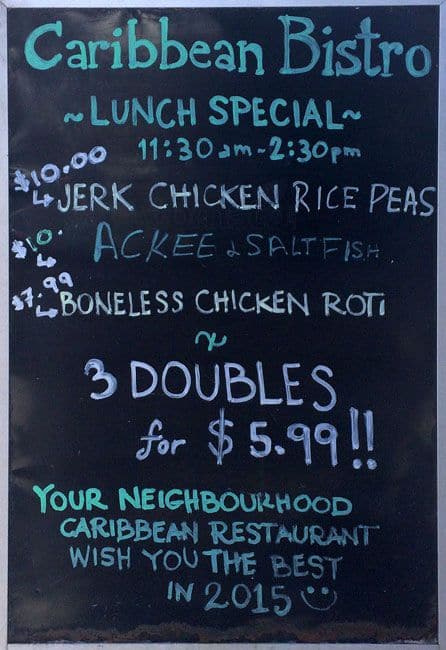 Caribbean Bistro
~LUNCH SPECIAL~
11:30am-2:30pm
$10.00
↳JERK CHICKEN RICE PEAS
$10.
↳ ACKEE & SALTFISH
$7.99
↳BONELESS CHICKEN ROTI
~
3 DOUBLES
for $5.99!!
YOUR NEIGHBOURHOOD
CARIBBEAN RESTAURANT
WISH YOU THE BEST
IN 2015 ☺